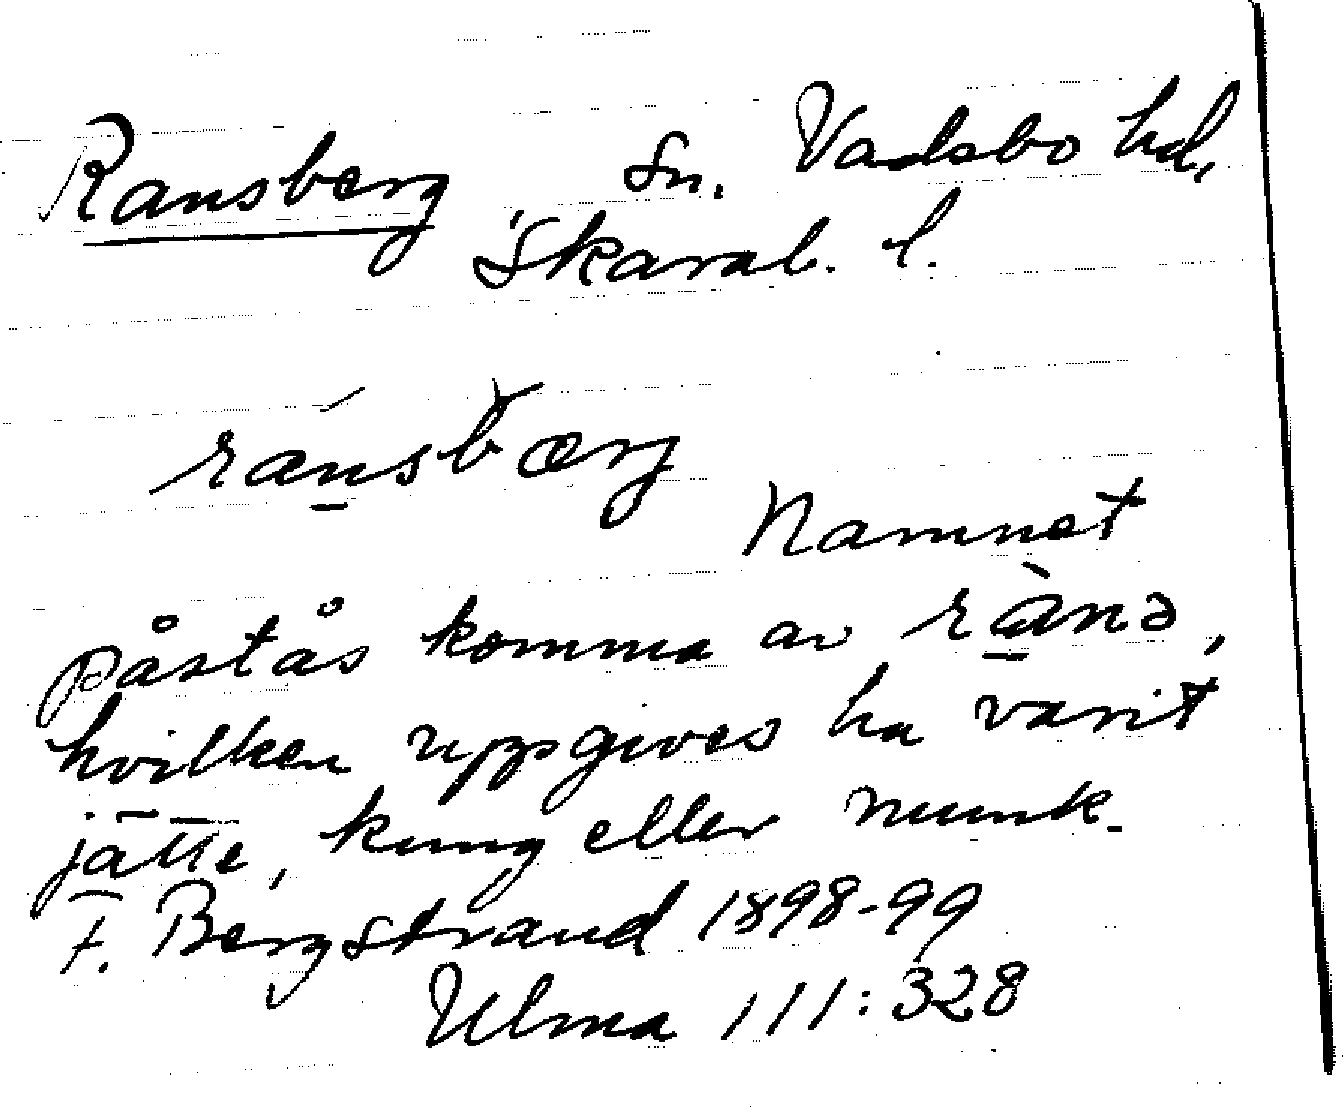 Ransberg Sn. Vadsbo hd,
Skarab. l.
ránsbærj
Namnet
påstås komma av rànə,
hvilken uppgives ha varit
jätte, kung eller munk.
F. Bergstrand 1898-99
Ulma 111:328